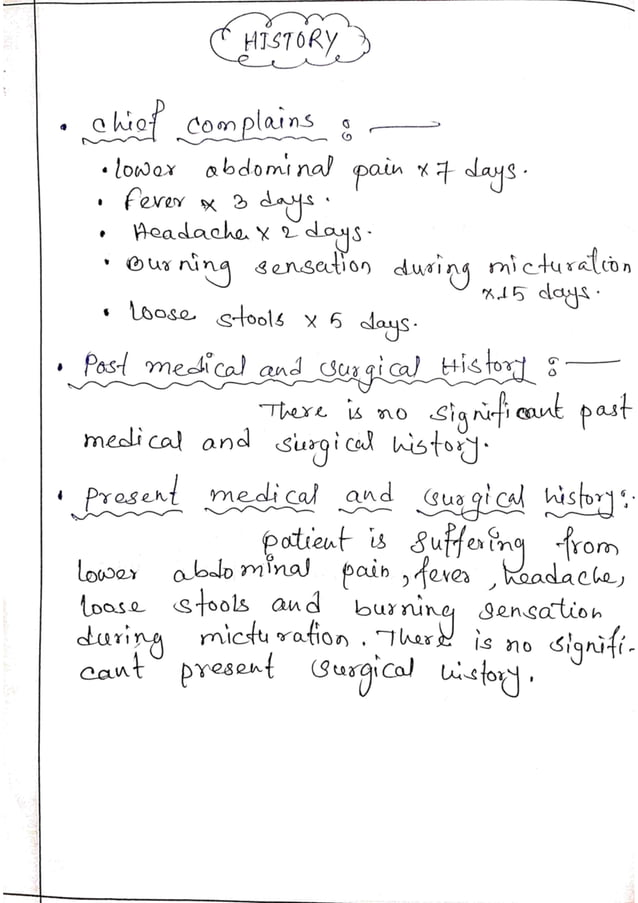 HISTORY
• Chief complains :—
• Lower abdominal pain x 7 days.
• Fever x 3 days.
• Headache x 2 days.
• Burning sensation during micturation
x 15 days.
• Loose stools x 5 days.
• Past medical and surgical History :—
There is no significant past
medical and surgical history.
• Present medical and surgical history:-
patient is suffering from
lower abdominal pain, fever, headache,
loose stools and burning sensation
during micturation. There is no signifi-
cant present surgical history.